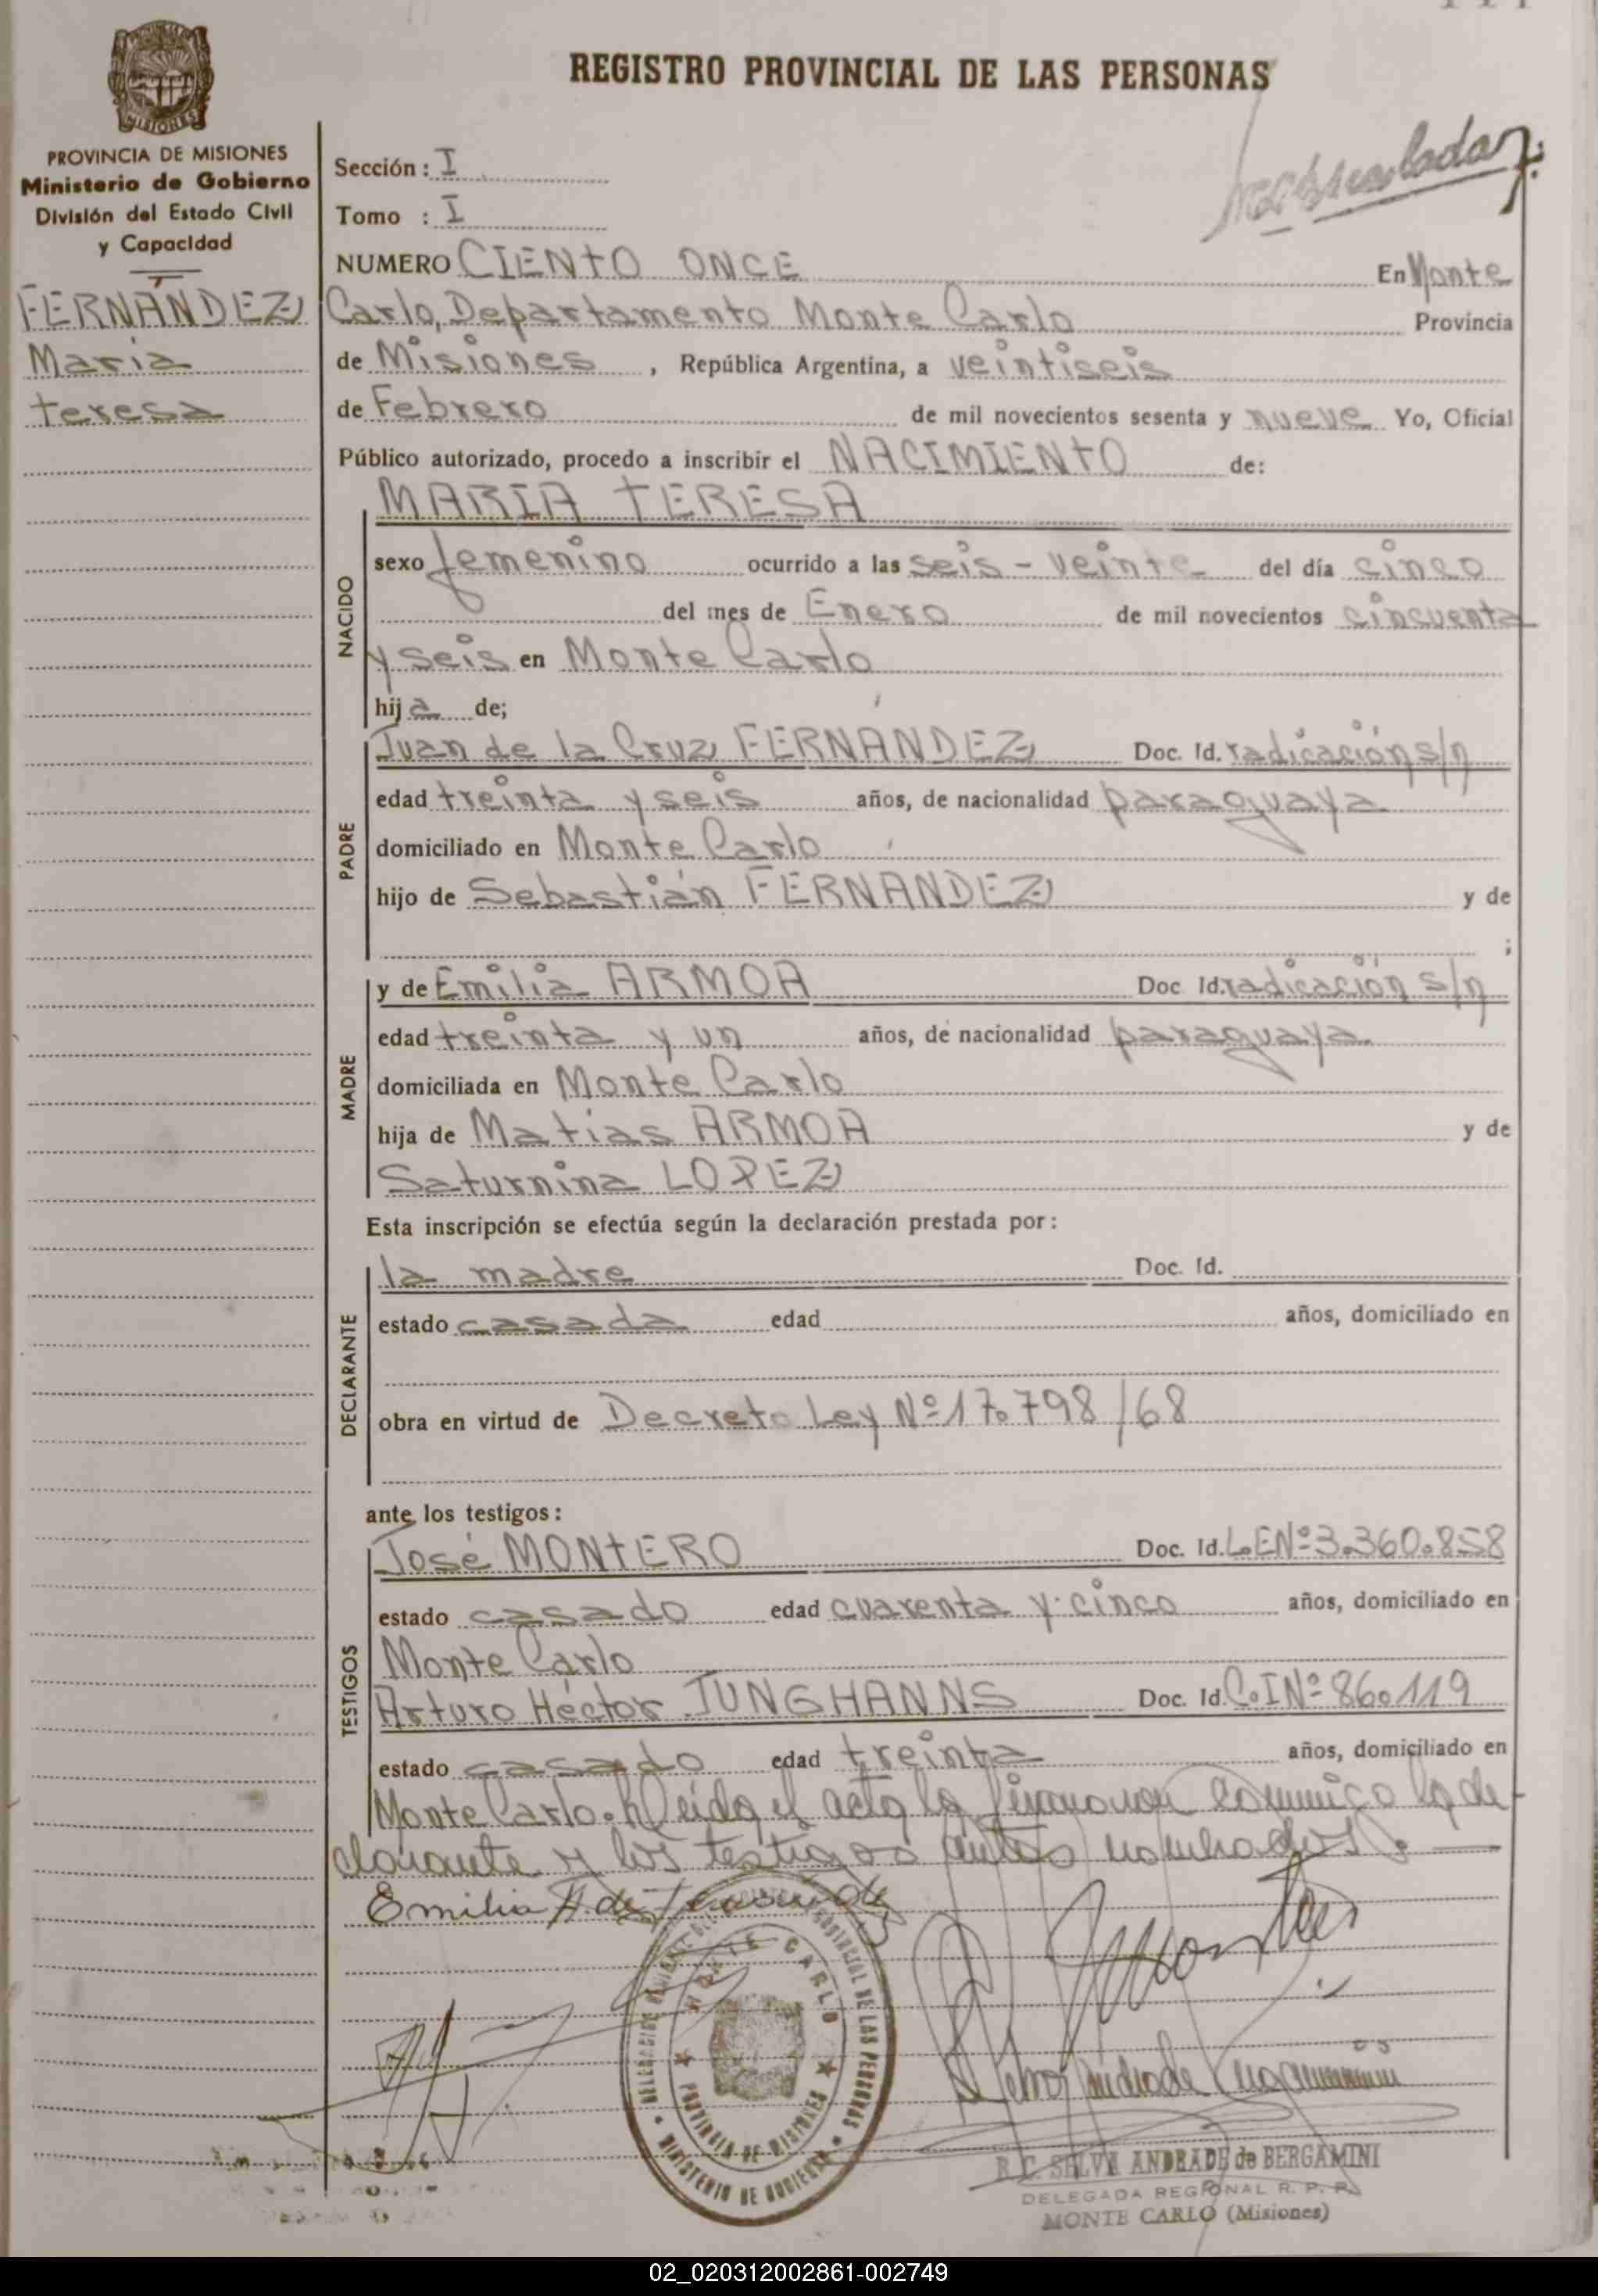 REGISTRO PROVINCIAL DE LAS PERSONAS
MISIONES
PROVINCIA DE MISIONES
Ministerio de Gobierno
División del Estado Civil
y Capacidad
FERNÁNDEZ
Maria
teresa
Sección: I
Tomo : I
NUMERO CIENTO ONCE En Monte
Carlo, Departamento Monte Carlo Provincia
de Misiones, República Argentina, a veintiseis
de Febrero de mil novecientos sesenta y nueve Yo, Oficial
Público autorizado, procedo a inscribir el NACIMIENTO de:
NACIDO
MARIA TERESA
sexo femenino ocurrido a las seis - veinte del día cinco
del mes de Enero de mil novecientos cincuenta
y seis en Monte Carlo
hija de;
PADRE
Juan de la Cruz FERNÁNDEZ Doc. Id. radicación s/n
edad treinta y seis años, de nacionalidad paraguaya
domiciliado en Monte Carlo
hijo de Sebastián FERNANDEZ y de
;
MADRE
y de Emilia ARMOA Doc Id. radicación s/n
edad treinta y un años, de nacionalidad paraguaya
domiciliada en Monte Carlo
hija de Matias ARMOA y de
Saturnina LOPEZ
Esta inscripción se efectúa según la declaración prestada por:
DECLARANTE
la madre Doc. Id.
estado casada edad años, domiciliado en
obra en virtud de Decreto Ley Nº 17.798/68
ante los testigos:
TESTIGOS
José MONTERO Doc. Id. L.E Nº 3.360.858
estado casado edad cuarenta y cinco años, domiciliado en
Monte Carlo
Arturo Héctor JUNGHANNS Doc. Id. C.I Nº 860.119
estado casado edad treinta años, domiciliado en
Monte Carlo. Leida el acta la firmaron conmigo la de-
clarante y los testigos antes nombrados.
Emilia A. de Fernandez
MONTE CARLO
PROVINCIA DE MISIONES
MINISTERIO DE GOBIERNO
PROVINCIAL DE LAS PERSONAS
R. C. SILVA ANDRADE de BERGAMINI
DELEGADA REGIONAL R. P. P.
MONTE CARLO (Misiones)
02_020312002861-002749